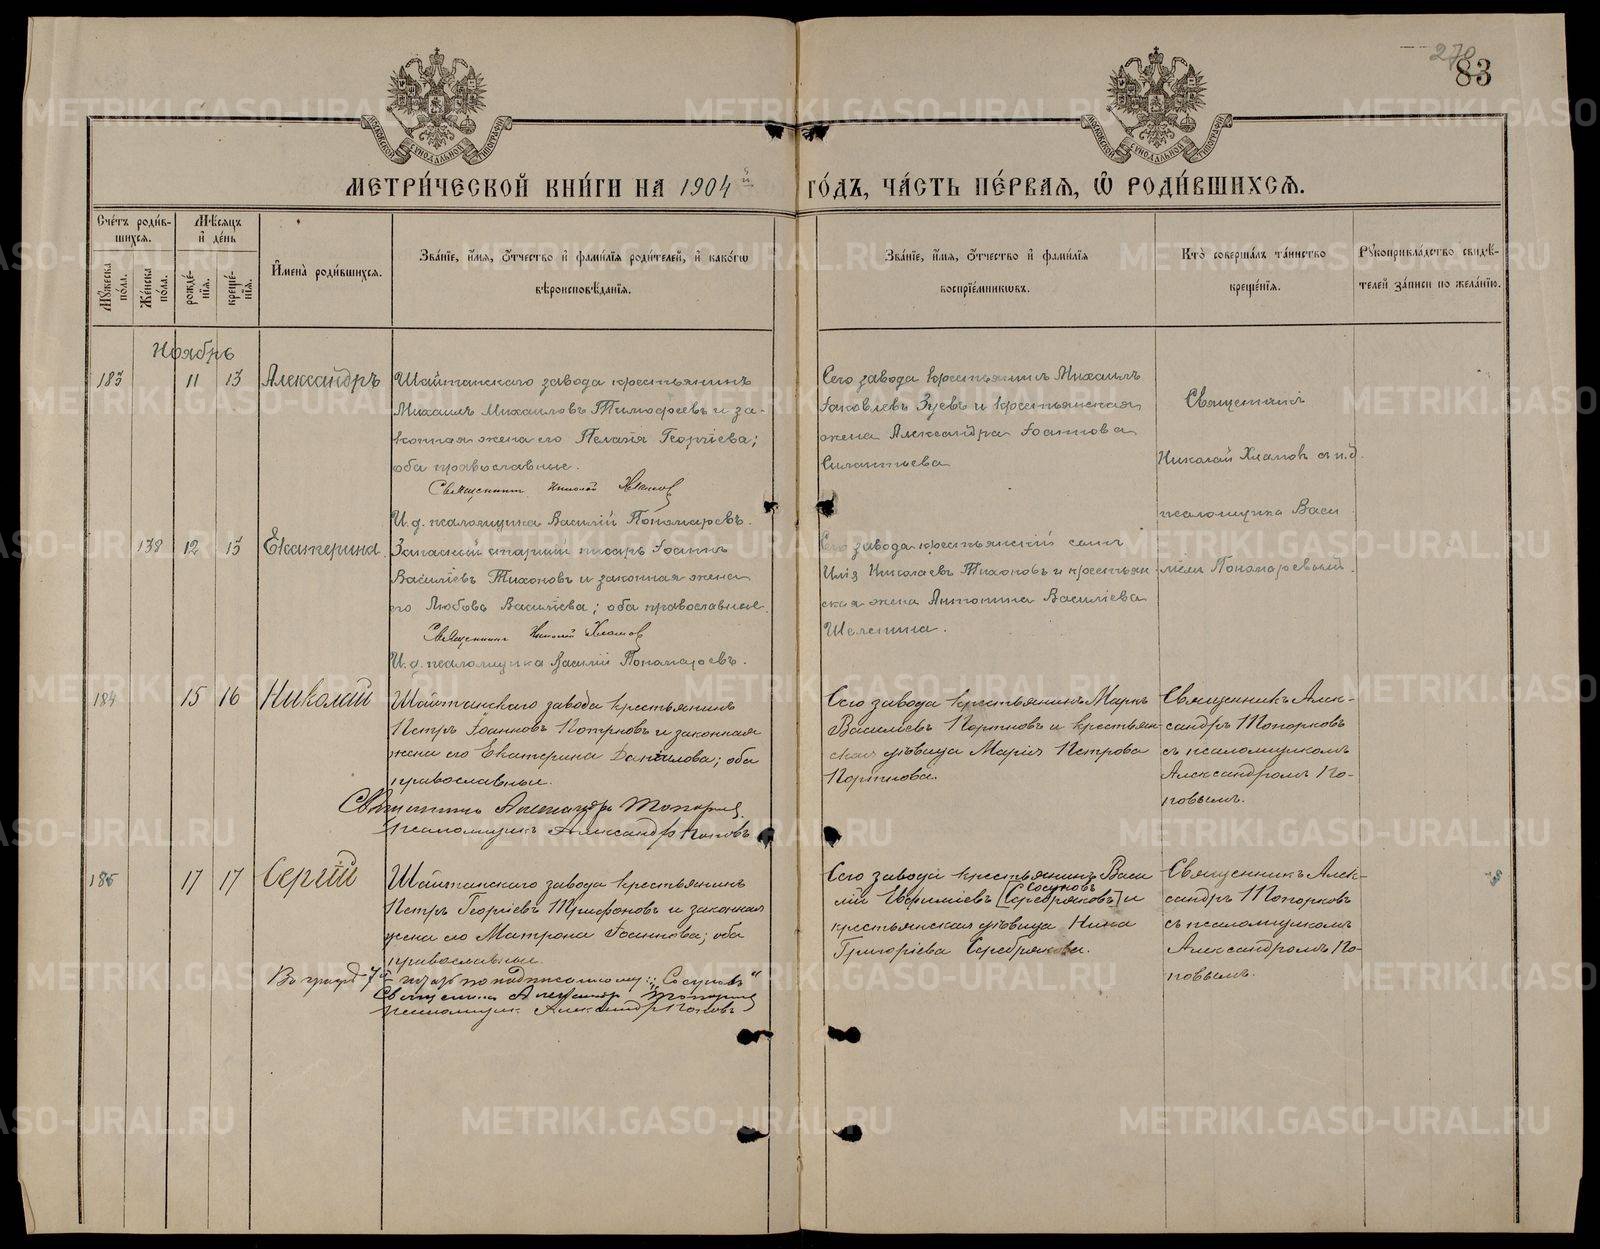 270
83
МОСКОВСКОЙ СУНОДАЛЬНОЙ ТИПОГРАФІИ
МОСКОВСКОЙ СУНОДАЛЬНОЙ ТИПОГРАФІИ
МЕТРИ́ЧЕСКОЙ КНИ́ГИ НА 1904й ГО́ДЪ, ЧА́СТЬ ПЕ́РВАѦ, Ѽ РОДИ́ВШИХСѦ.
Сче́тъ роди́вшихсѧ.
Мѣ́сѧцъ и҆ де́нь
Мꙋ́жеска по́ла.
Же́нска по́ла.
рожде́нїѧ.
креще́нїѧ.
И҆мена̀ роди́вшихсѧ.
Зва́нїе, и҆́мѧ, ѻ҆́тчество и҆ фами́лїѧ роди́телей, и҆ како́гѡ
вѣроисповѣ́данїѧ.
Зва́нїе, и҆́мѧ, ѻ҆́тчество и҆ фами́лїѧ
воспрїе́мникѡвъ.
Кто̀ соверша́лъ та́инство
креще́нїѧ.
Рꙋкоприкла́дство свидѣ́-
телей за́писи по жела́нїю.
Ноябрь
183 11 13 Александръ
Шайтанскаго завода крестьянинъ
Михаилъ Михаиловъ Тимофеевъ и за-
конная жена его Пелагія Георгіева;
оба православные.
Священникъ Николай Хламов
И.д. псаломщика Василій Пономаревъ.
Сего завода крестьянинъ Михаилъ
Іаковлевъ Зуевъ и крестьянская
жена Александра Іоаннова
Силантьева
Священникъ
Николай Хламовъ с и.д.
псаломщика Васи
ліем Пономаревым.
138 12 13 Екатерина
Запасной старшій писарь Іоаннъ
Василіевъ Тихоновъ и законная жена
его Любовь Василіева; оба православные.
Священникъ Николай Хламов
И.д. псаломщика Василій Пономаревъ.
Сего завода крестьянскій сынъ
Илія Николаевъ Тихоновъ и крестьян
ская жена Антонина Василіева
Шелепина.
184 15 16 Николай
Шайтанскаго завода крестьянинъ
Петръ Іоанновъ и законная
жена его Екатерина Даніилова; оба
православные.
Священникъ Александръ Топорков
псаломщикъ Александръ Поповъ
Сего завода крестьянинъ Маркъ
Василіевъ Портновъ и крестьян-
ская дѣвица Марія Петрова
Портнова.
Священникъ Алек-
сандръ Топорковъ
съ псаломщикомъ
Александромъ По-
повымъ.
185 17 17 Сергій
Шайтанскаго завода крестьянинъ
Петръ Георгіевъ Трифоновъ и законная
жена его Матрона Іоаннова; оба
православные.
Въ графѣ 7й писарь по надписанному: „Сосуновъ"
Священникъ Александръ Топорков
псаломщикъ Александръ Поповъ
Сего завода крестьянинъ Васи
лій Евфиміевъ Сосуновъ [Серебряковъ] и
крестьянская дѣвица Нина
Григоріева Серебрякова.
Священникъ Алек-
сандръ Топорковъ
съ псаломщикомъ
Александромъ По-
повымъ.
METRIKI.GASO-URAL.RU